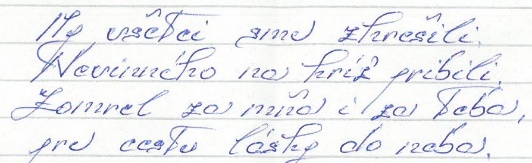 My všetci sme zhrešili.
Nevinného na kríž pribili.
Zomrel za mňa i za Teba,
pre cestu lásky do neba.